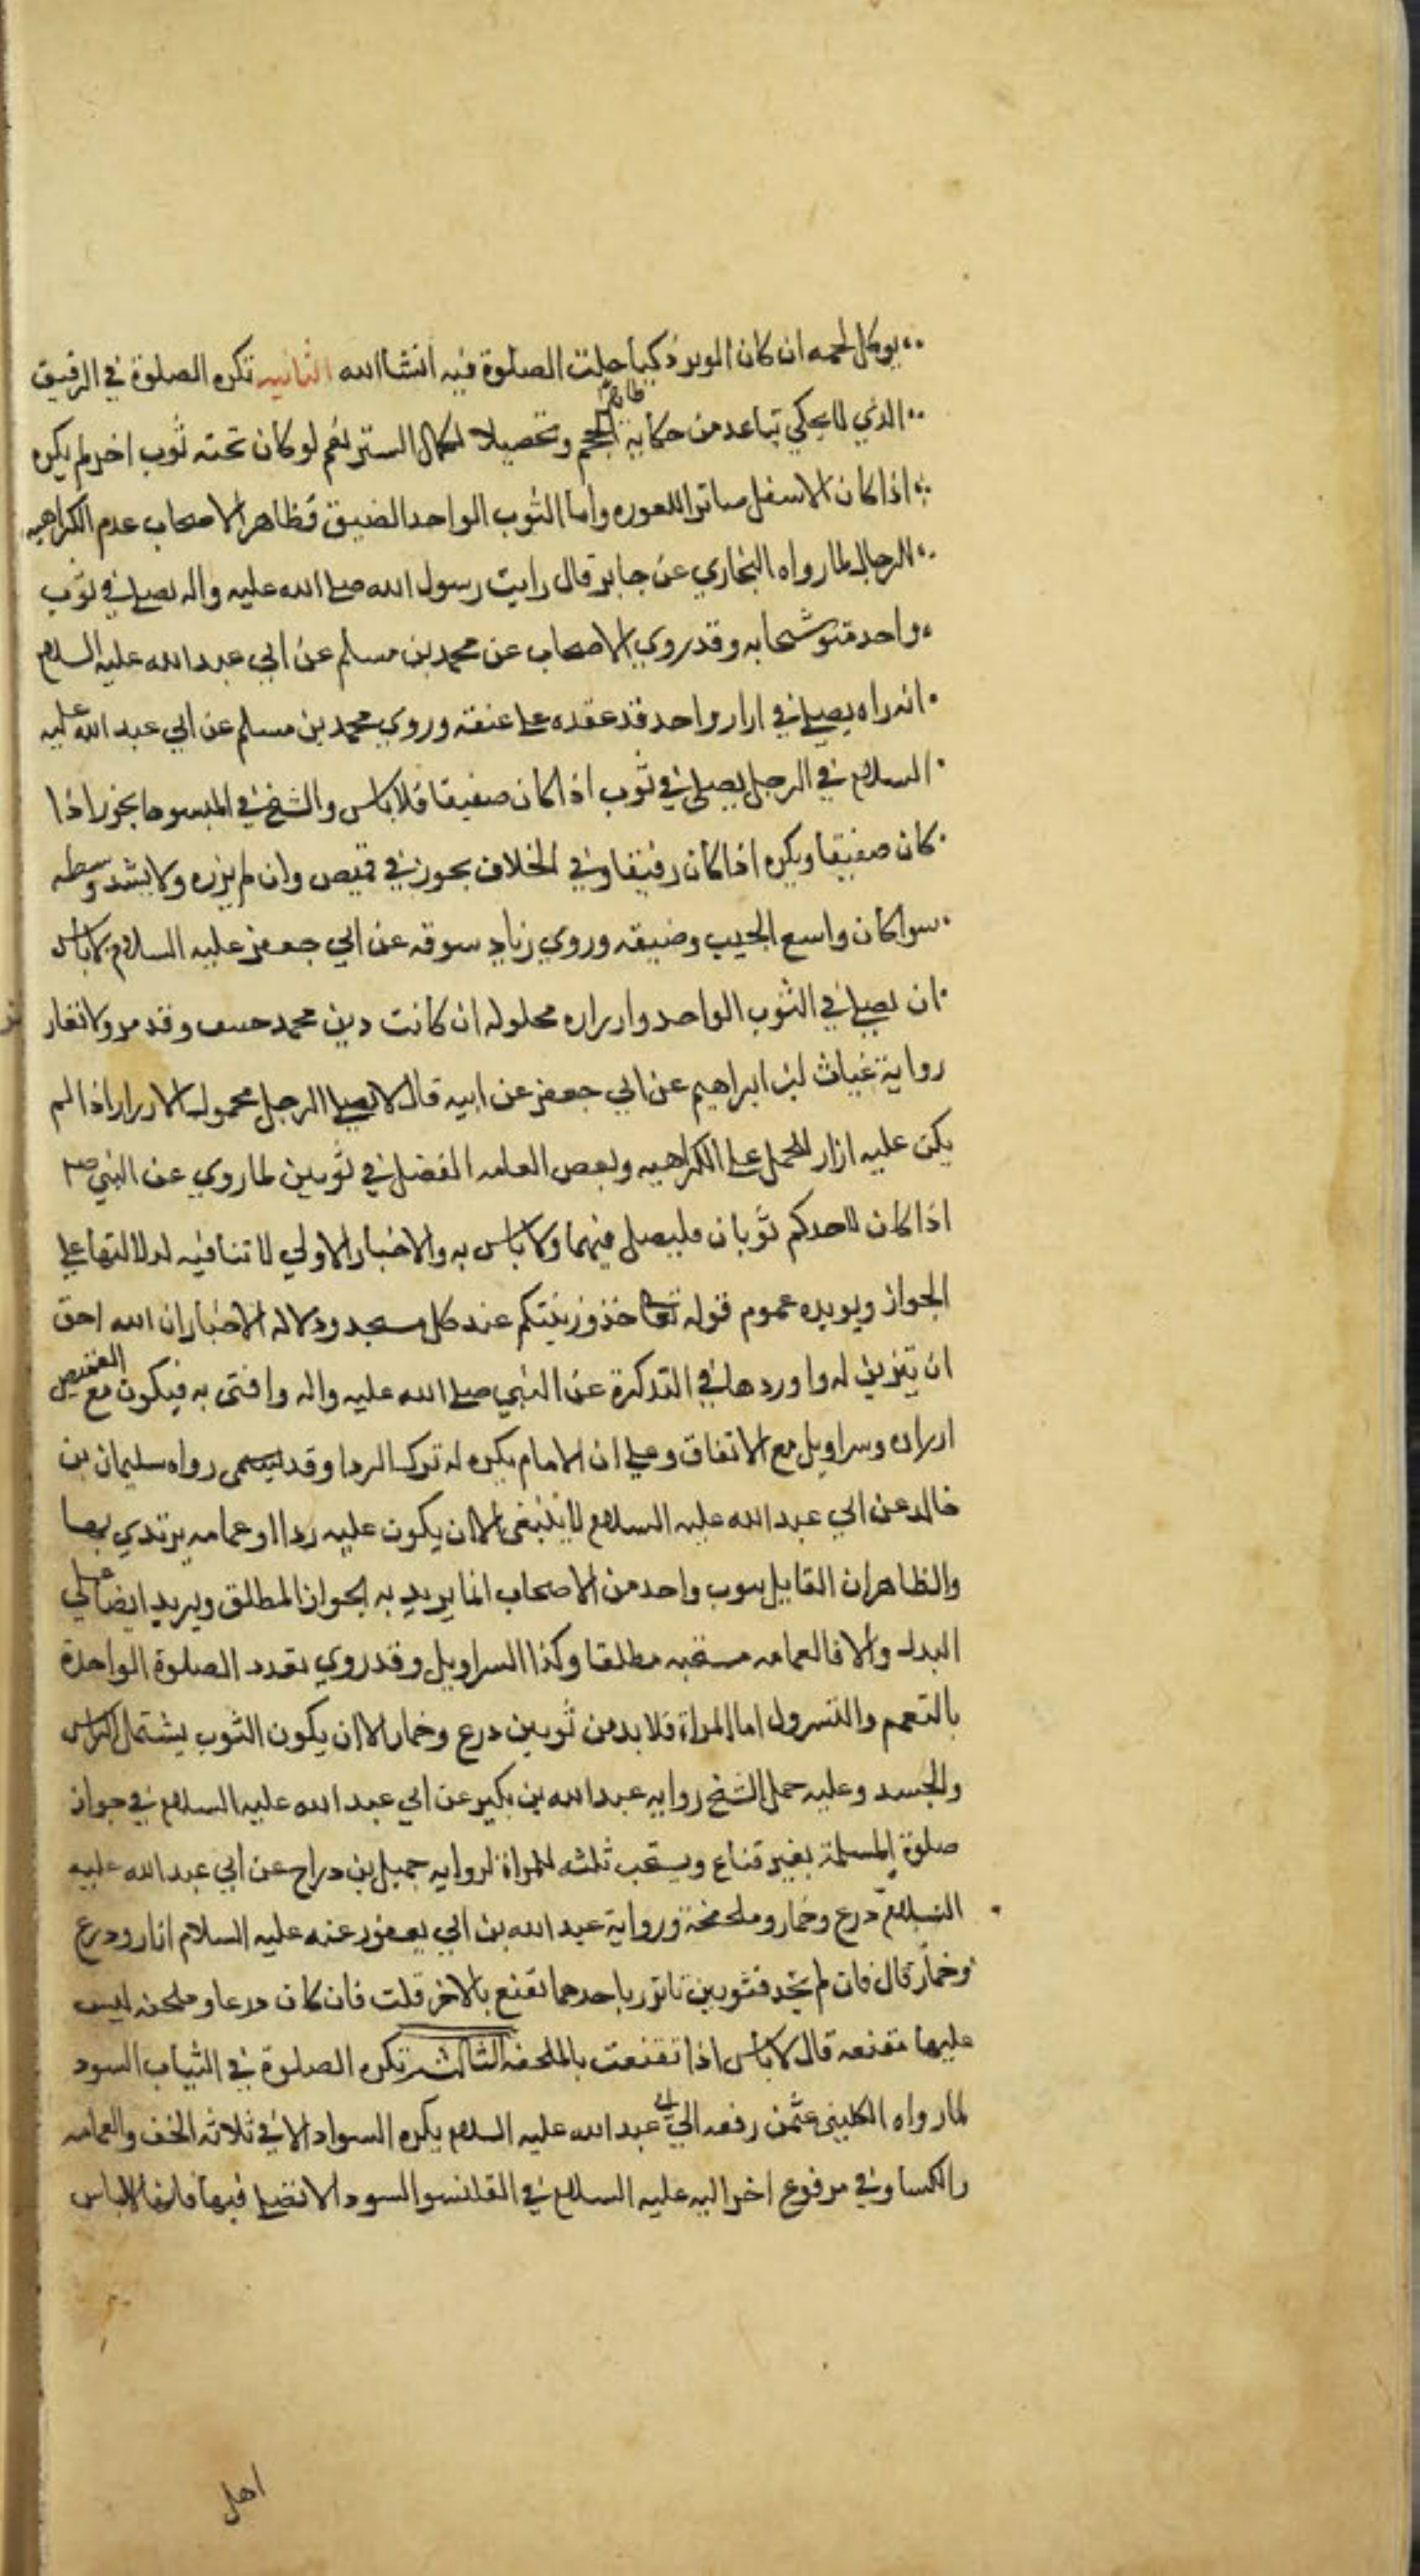 يوكل لحمه ان كان الوبر ذكيا حلت الصلوة فيه انشاالله الثانيه تكره الصلوة في الرقيق
الذي لا يحكي تباعد من حكاية الحجم وتحصيلا لكمال الستر نعم لو كان تحته ثوب اخر لم يكره
اذا كان الاسفل ساترا للعوره واما الثوب الواحد الضيق فظاهر الاصحاب عدم الكراهيه
للرجال لما رواه البخاري عن جابر قال رايت رسول الله صلى الله عليه واله يصلي في ثوب
واحد متوشحا به وقد روي الاصحاب عن محمد بن مسلم عن ابي عبد الله عليه السلام
انه راه يصلي في ازار واحد قد عقده على عنقه وروي محمد بن مسلم عن ابي عبد الله عليه
السلام في الرجل يصلي في ثوب اذا كان صفيقا فلا باس والشيخ في المبسوط يجوز اذا
كان صفيقا ويكره اذا كان رقيقا وفي الخلاف يجوز في قميص وان لم يزره ولا يشد وسطه
سوا كان واسع الجيب وضيقه وروي زياد سوقه عن ابي جعفر عليه السلام لا باس
ان يصلي في الثوب الواحد وازراره محلوله ان كانت دين محمد حنيف وقد مر ولا تعار
رواية غياث ابن ابراهيم عن ابي جعفر عن ابيه قال لا يصلي الرجل محمول الازرار اذا لم
يكن عليه ازار للحمل على الكراهيه وبعض العامه الفضل في ثوبين لما روي عن النبي ص
اذا كان لاحدكم ثوبان فليصل فيهما ولا باس به والاخبار الاولي لا تنافيه لدلالتها علي
الجواز ويويده عموم قوله تعالى خذوا زينتكم عند كل مسجد ودلاله الاخبار ان الله احق
ان يتزين له واوردها في التذكرة عن النبي صلى الله عليه واله وافتى به فيكون مع القميص
ازاره وسراويل مع الاتفاق وعلي ان الامام يكره له ترك الردا وقد رواه سليمان بن
خالد عن ابي عبد الله عليه السلام لا ينبغي الا ان يكون عليه ردا او عمامه يرتدي بها
والظاهر ان القايل بثوب واحد من الاصحاب انما يريد به الجواز المطلق ويريد ايضا علي
البدن والا فالعمامه مستحبه مطلقا وكذا السراويل وقد روي تعدد الصلوة الواحدة
بالتعمم والتسرول اما المراة فلا بد من ثوبين درع وخمار الا ان يكون الثوب يشتمل الراس
والجسد وعليه حمل الشيخ روايه عبد الله بن بكير عن ابي عبد الله عليه السلام في جواز
صلوة المسلمة بغير قناع ويستحب ثلثه للمراة لروايه جميل بن دراج عن ابي عبد الله عليه
السلام درع وخمار وملحفة ورواية عبد الله بن ابي يعفور عنه عليه السلام ازار ودرع
وخمار قال فان لم تجد فثوبين تاتزر باحدهما تقنع بالاخر قلت فان كان درعا وملحفه ليس
عليها مقنعه قال لا باس اذا تقنعت بالملحفه الثالثه تكره الصلوة في الثياب السود
لما رواه الكليني عمن رفعه الي ابي عبد الله عليه السلام يكره السواد الا في ثلاثه الخف والعمامه
والكسا وفي مرفوع اخر اليه عليه السلام في القلنسو السود لا تصلي فيها فانها لباس
اهل